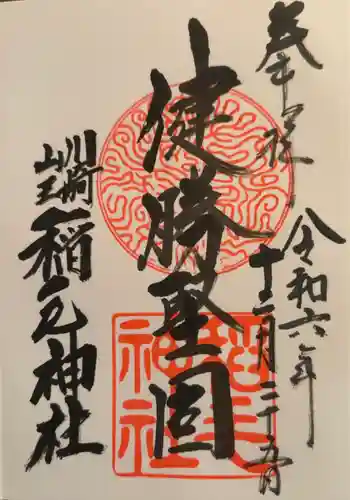 奉拝
令和六年
十二月二十五日
健勝堅固
川崎
山王
稲毛神社
稲毛
神社